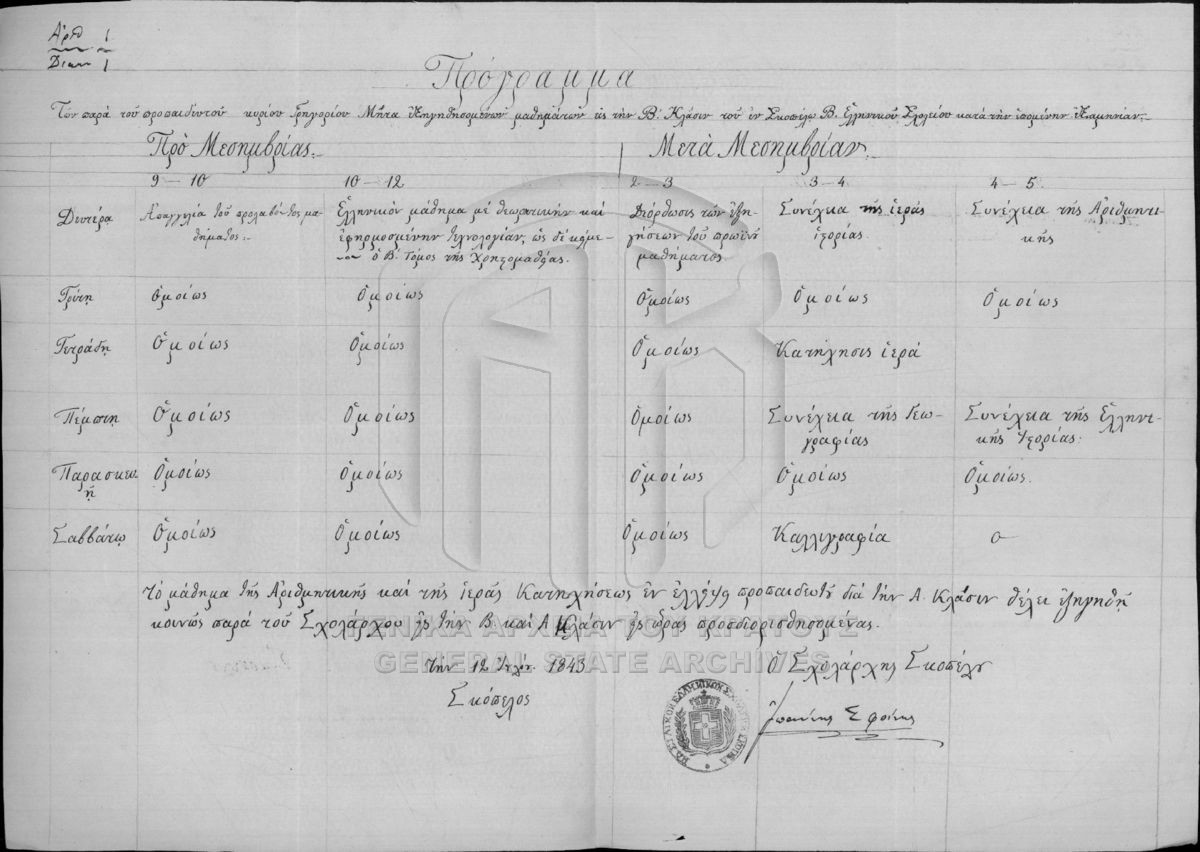 Ἀριθ 1
Διαιρ 1
Πρόγραμμα
Τῶν παρὰ τοῦ προπαιδευτοῦ κυρίου Γρηγορίου Μήτα ἐξηγηθησομένων μαθημάτων εἰς τὴν Β. Κλάσιν τοῦ ἐν Σκοπέλῳ Β. Ἑλληνικοῦ Σχολείου κατὰ τὴν ἑπομένην ἑξαμηνίαν.
Πρὸ Μεσημβρίας. Μετὰ Μεσημβρίαν.
9 — 10 10 — 12 2 — 3 3 — 4 4 — 5
Δευτέρα Ἀπαγγελία τοῦ προλαβόντος μα- Ἑλληνικὸν μάθημα μὲ θεωρητικὴν καὶ Διόρθωσις τῶν ἐξη- Συνέχεια τῆς ἱερᾶς Συνέχεια τῆς Ἀριθμητι-
θήματος ἐφηρμοσμένην τεχνολογίαν, ὡς δὲ κείμε- γήσεων τοῦ πρωϊνοῦ ἱστορίας. κῆς
νον ὁ Β. Τόμος τῆς Χρηστομαθείας. μαθήματος
Τρίτη Ὁμοίως Ὁμοίως Ὁμοίως Ὁμοίως Ὁμοίως
Τετράδη Ὁμοίως Ὁμοίως Ὁμοίως Κατήχησις ἱερά
Πέμπτη Ὁμοίως Ὁμοίως Ὁμοίως Συνέχεια τῆς Γεω- Συνέχεια τῆς Ἑλληνι-
γραφίας κῆς Ἱστορίας.
Παρασκευ- Ὁμοίως Ὁμοίως Ὁμοίως Ὁμοίως Ὁμοίως.
ῇ
Σαββάτῳ Ὁμοίως Ὁμοίως Ὁμοίως Καλλιγραφία
τὸ μάθημα τῆς Ἀριθμητικῆς καὶ τῆς ἱερᾶς Κατηχήσεως ἐν ἐλλείψει προπαιδευτοῦ διὰ τὴν Α. Κλάσιν θέλει ἐξηγηθῆ
κοινῶς παρὰ τοῦ Σχολάρχου εἰς τὴν Β. καὶ Α Κλάσιν εἰς ὥρας προσδιορισθησομένας.
ΓΕΝΙΚΑ ΑΡΧΕΙΑ ΤΟΥ ΚΡΑΤΟΥΣ
GENERAL STATE ARCHIVES
τὴν 12 1843 ὁ Σχολάρχης Σκοπέλου
Σκόπελος